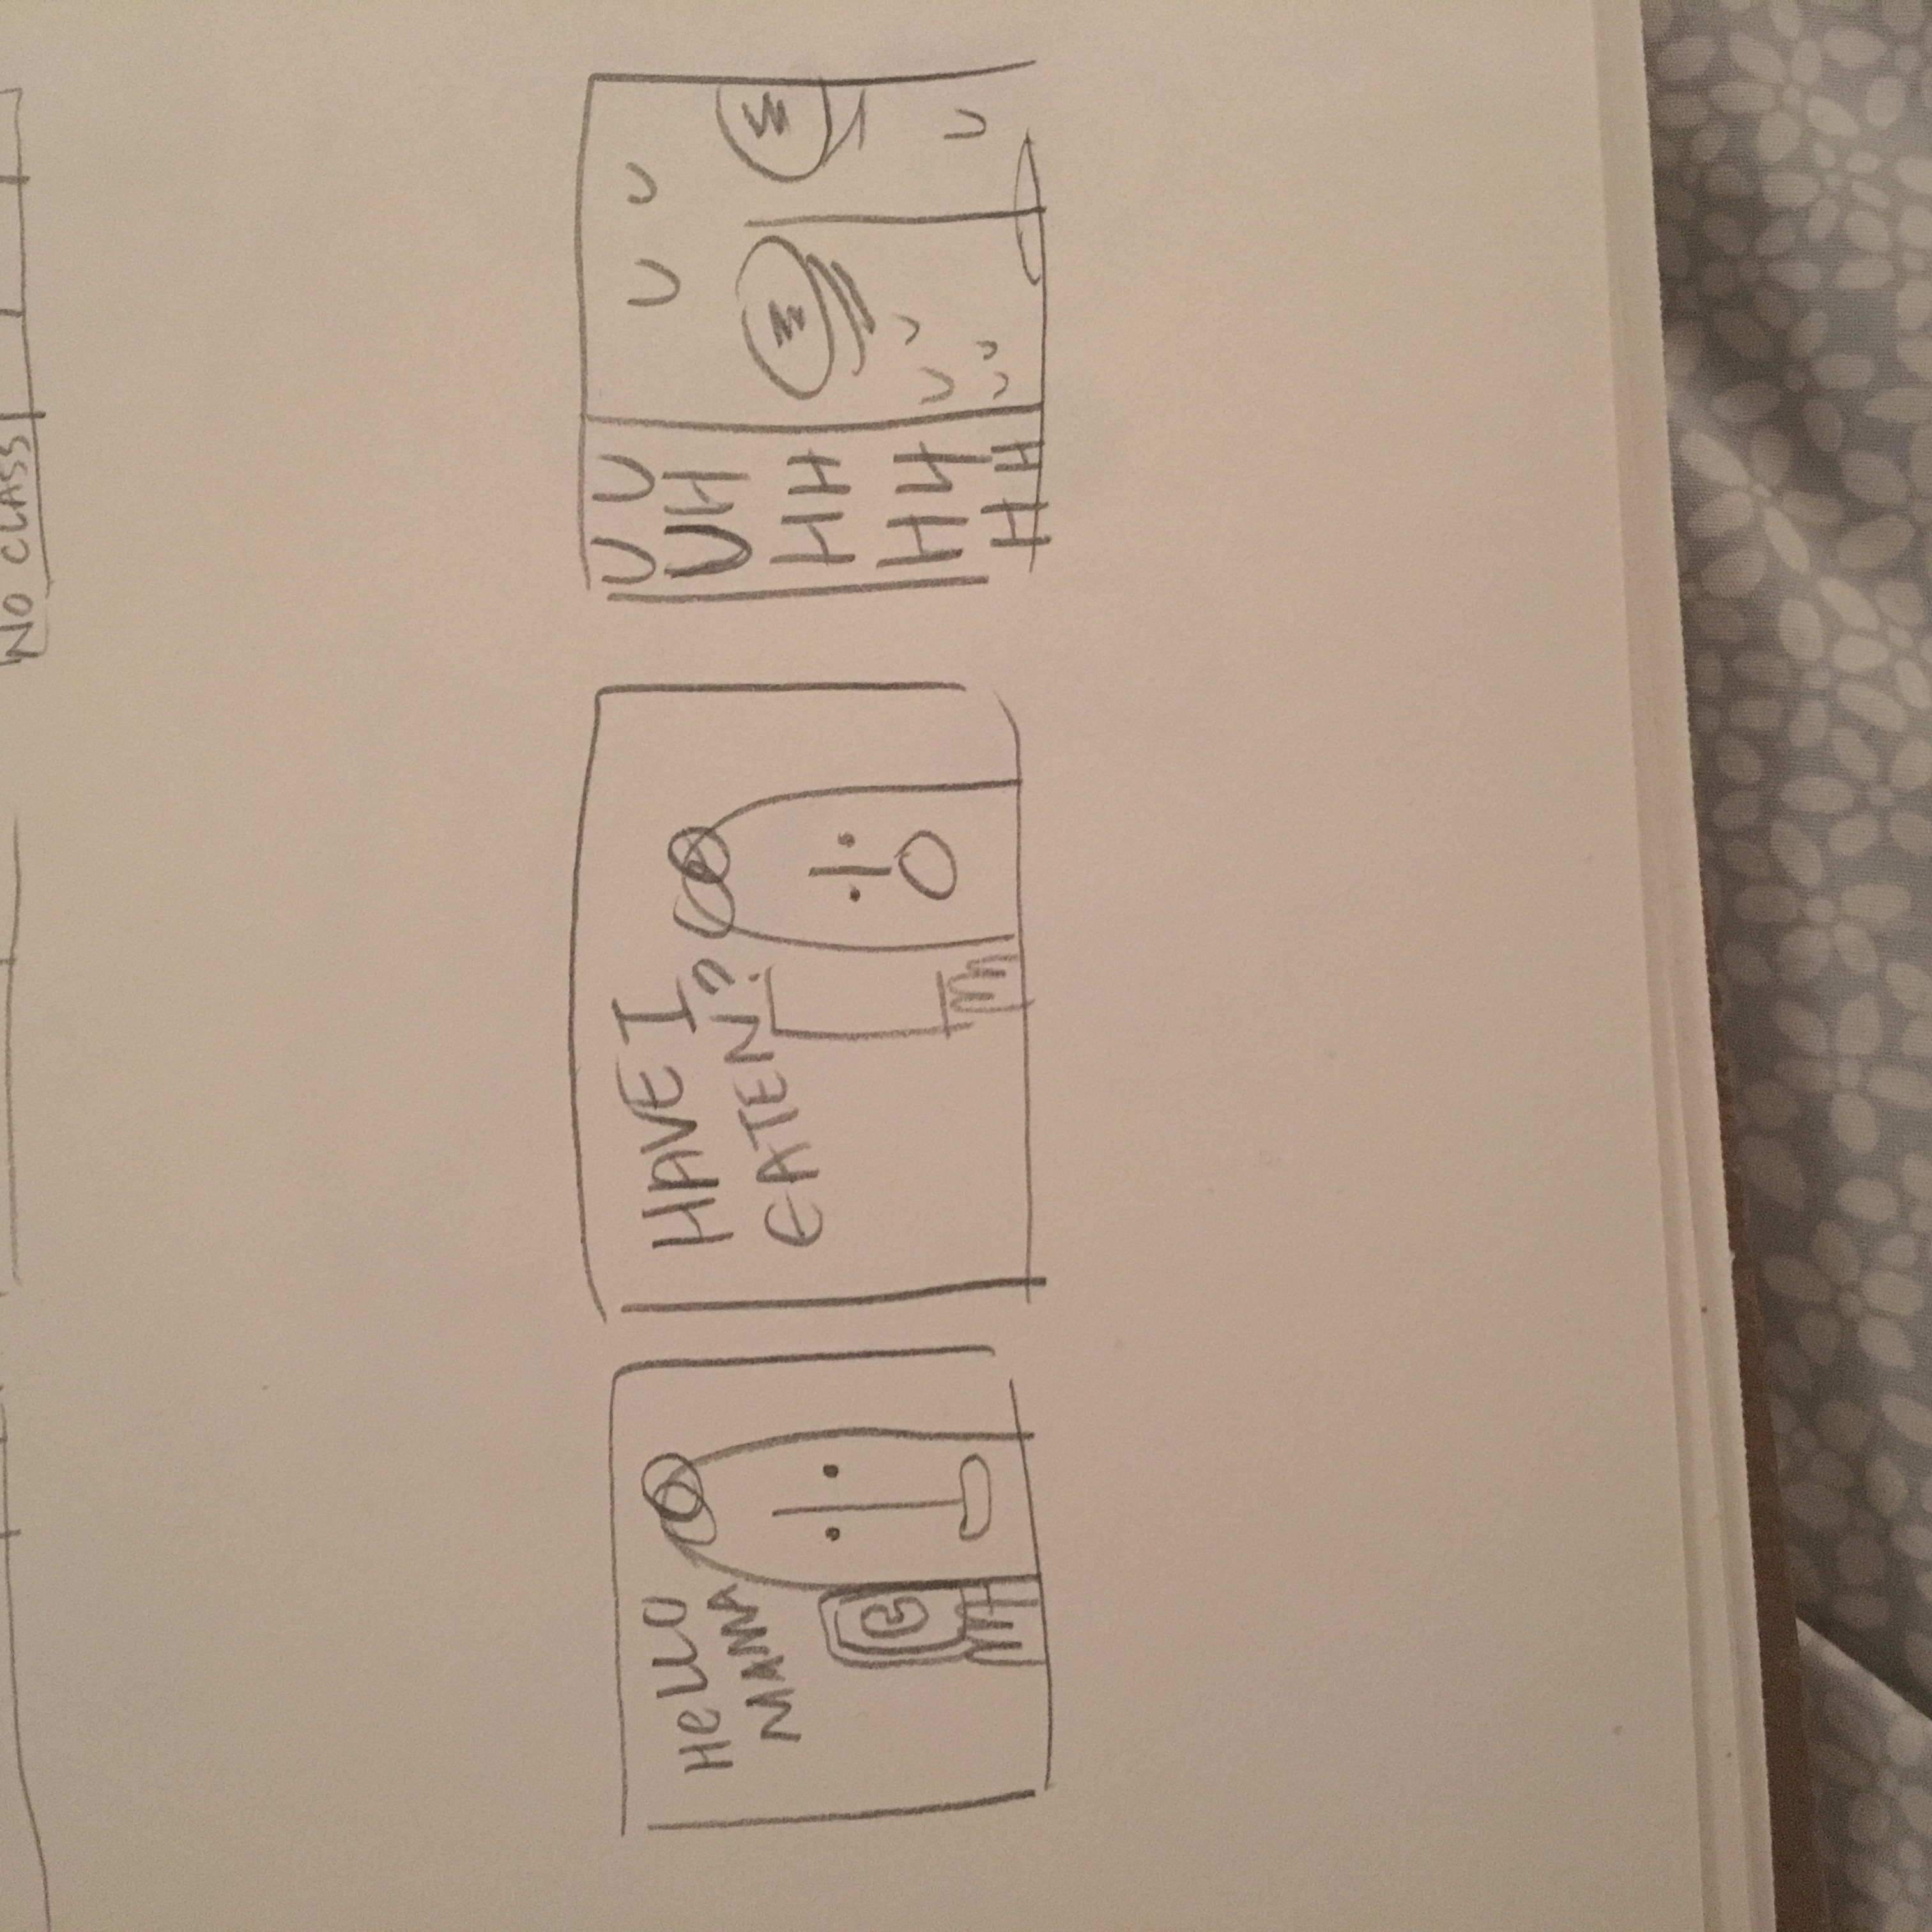 NO CLASS
HELLO
MAMA
HAVE I
EATEN?
U U
UH
HH
HH
HH